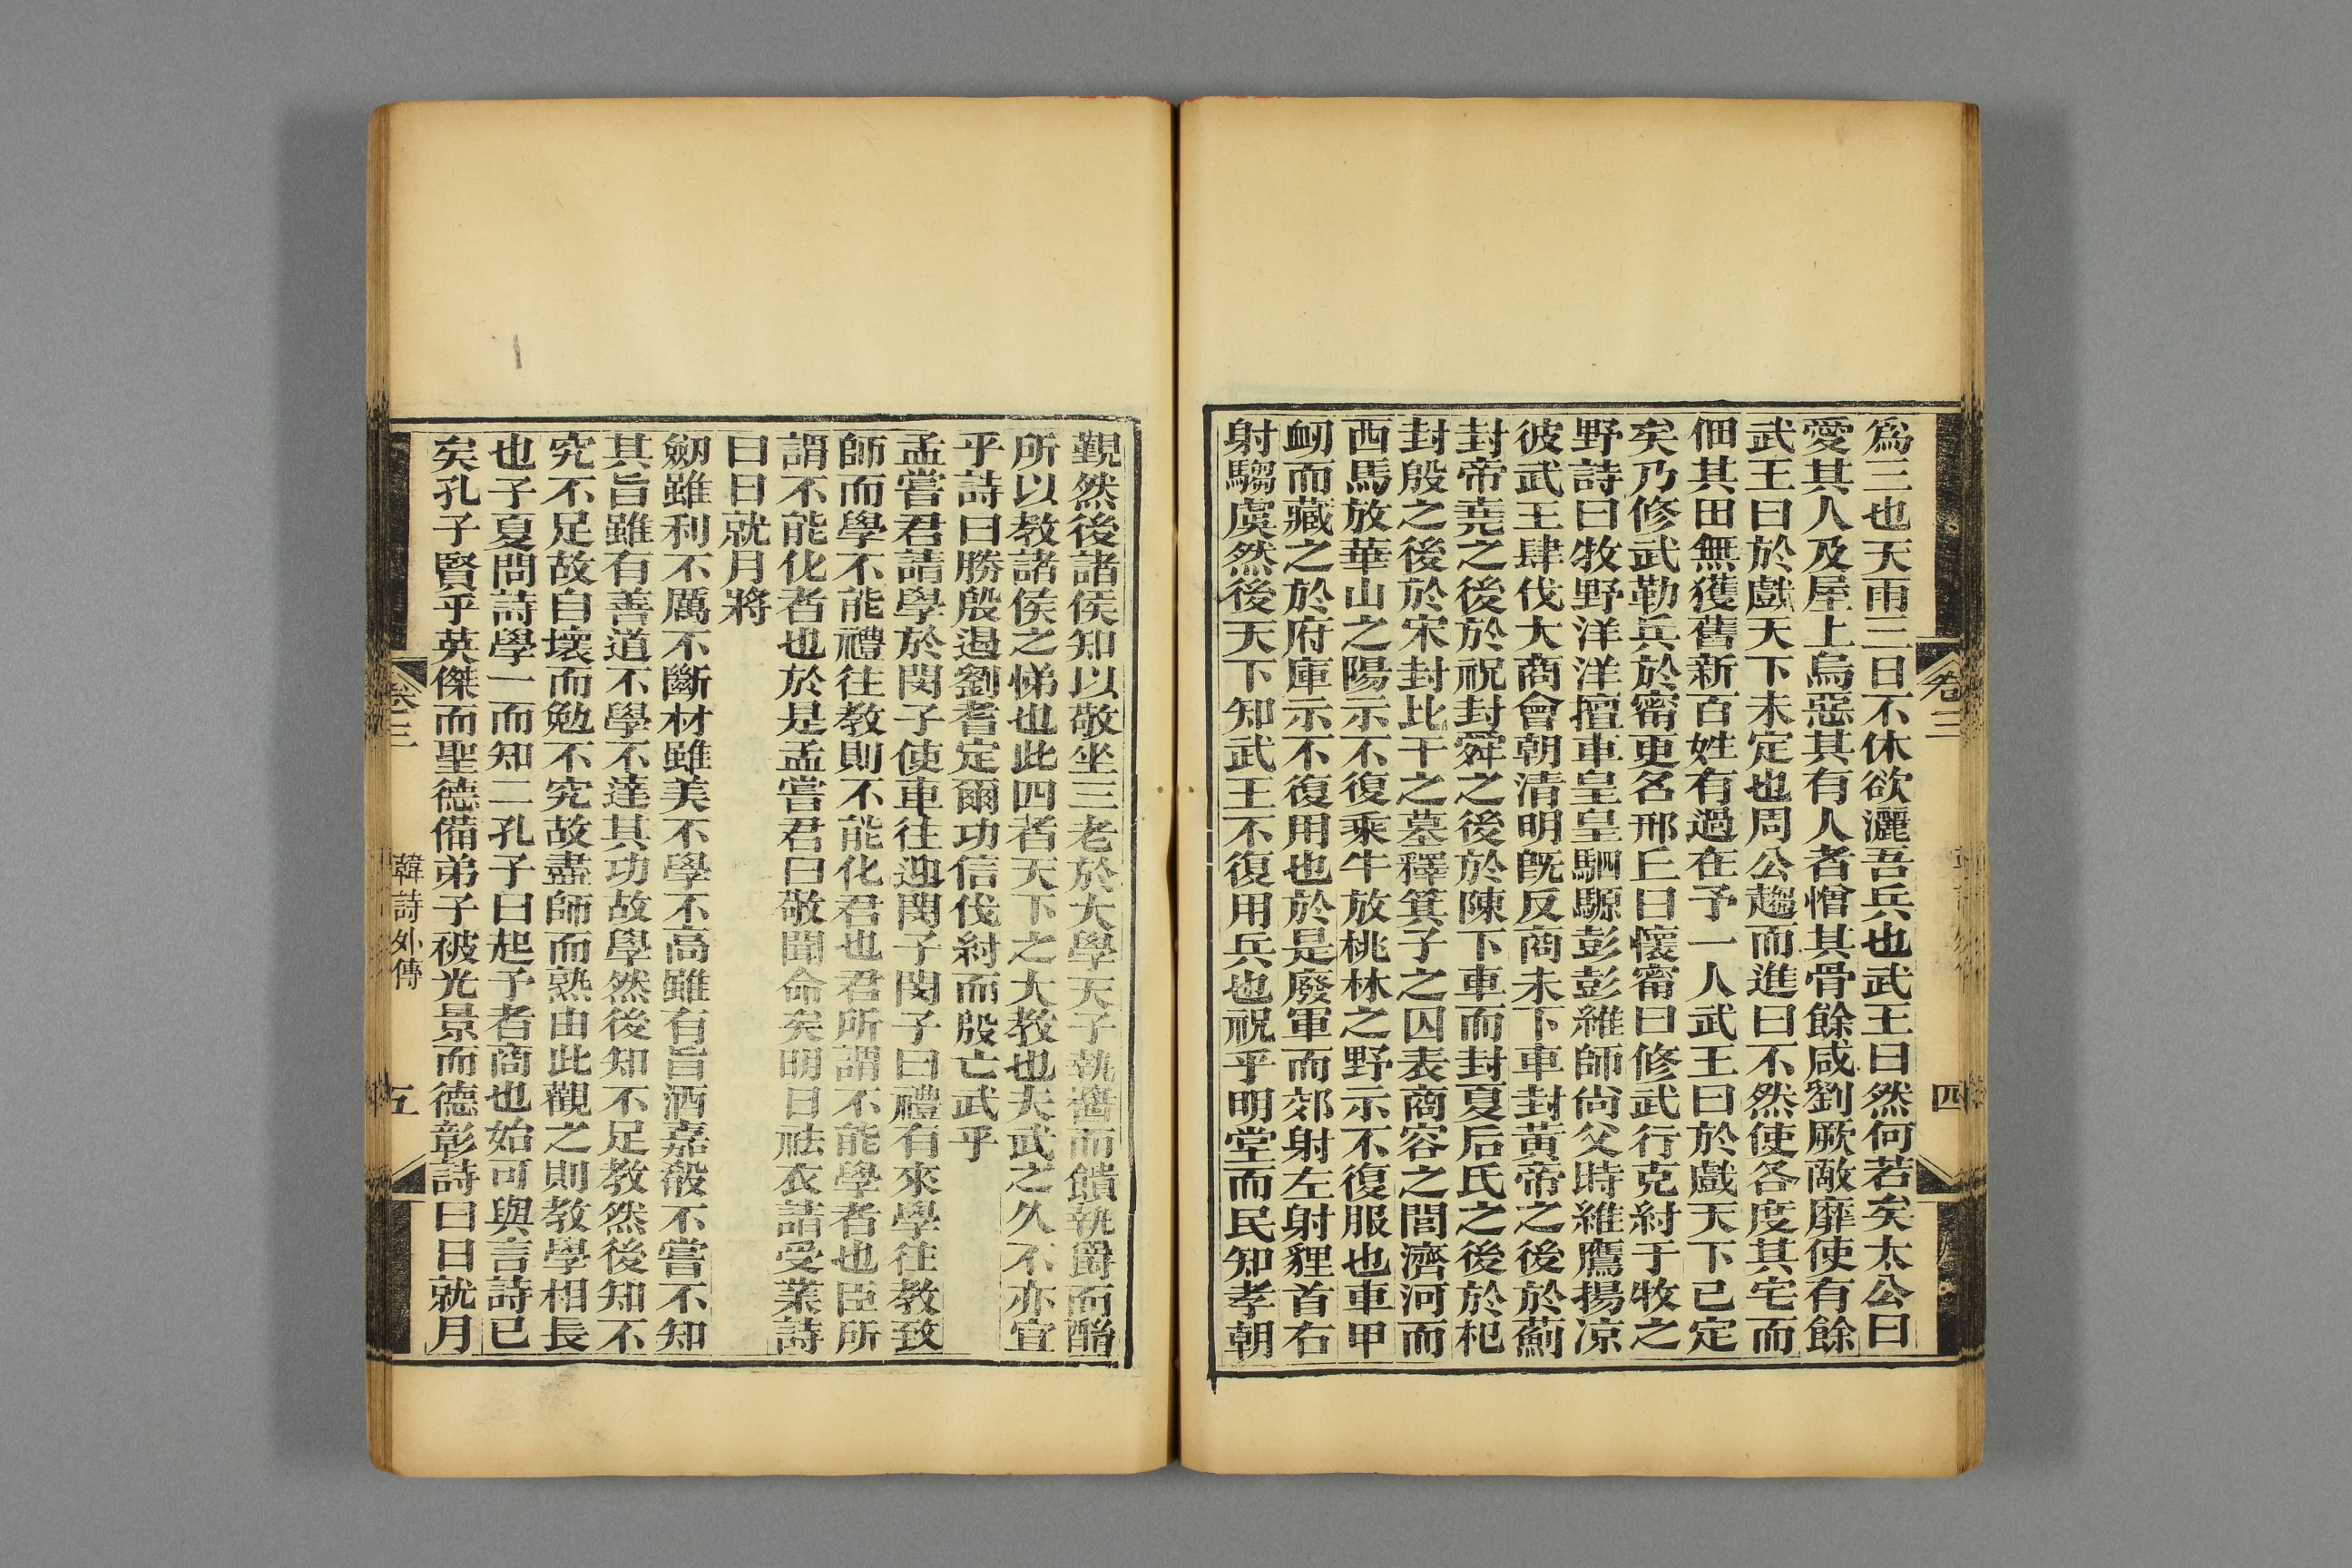 爲三也天雨三日不休欲灑吾兵也武王曰然何若矣太公曰
愛其人及屋上烏惡其有人者憎其骨餘咸劉厥敵靡使有餘
武王曰於戲天下未定也周公趨而進曰不然使各度其宅而
佃其田無獲舊新百姓有過在予一人武王曰於戲天下已定
矣乃修武勒兵於甯更名邢丘曰懷甯曰修武行克紂于牧之
野詩曰牧野洋洋檀車皇皇駟騵彭彭維師尙父時維鷹揚凉
彼武王肆伐大商會朝清明既反商未下車封黃帝之後於薊
封帝堯之後於祝封舜之後於陳下車而封夏后氏之後於杞
封殷之後於宋封比干之墓釋箕子之囚表商容之閭濟河而
西馬放華山之陽示不復乘牛放桃林之野示不復服也車甲
衅而藏之於府庫示不復用也於是廢軍而郊射左射貍首右
射騶虞然後天下知武王不復用兵也祝乎明堂而民知孝朝
卷三
四
覲然後諸侯知以敬坐三老於大學天子執醬而饋執爵而酳
所以教諸侯之悌也此四者天下之大教也夫武之久不亦宜
乎詩曰勝殷遏劉耆定爾功信伐紂而殷亡武乎
孟嘗君請學於閔子使車往迎閔子閔子曰禮有來學往教致
師而學不能禮往教則不能化君也君所謂不能學者也臣所
謂不能化者也於是孟嘗君曰敬聞命矣明日祛衣請受業詩
曰日就月將
劒雖利不厲不斷材雖美不學不高雖有旨酒嘉殽不嘗不知
其旨雖有善道不學不達其功故學然後知不足教然後知不
究不足故自壞而勉不究故盡師而熟由此觀之則教學相長
也子夏問詩學一而知二孔子曰起予者商也始可與言詩已
矣孔子賢乎英傑而聖德備弟子被光景而德彰詩曰日就月
卷三
韓詩外傳
五